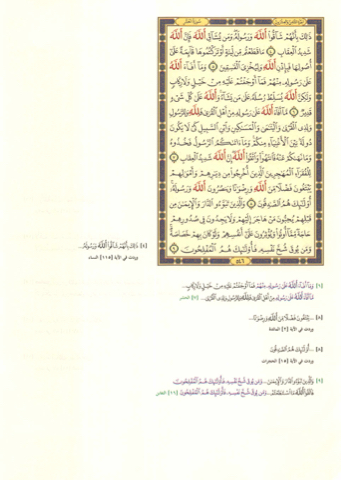 ذَٰلِكَ بِأَنَّهُمْ شَاقُّوا۟ ٱللَّهَ وَرَسُولَهُۥ وَمَن يُشَآقِّ ٱللَّهَ فَإِنَّ ٱللَّهَ
شَدِيدُ ٱلْعِقَابِ ٤ مَا قَطَعْتُم مِّن لِّينَةٍ أَوْ تَرَكْتُمُوهَا قَآئِمَةً عَلَىٰٓ
أُصُولِهَا فَبِإِذْنِ ٱللَّهِ وَلِيُخْزِىَ ٱلْفَٰسِقِينَ ٥ وَمَآ أَفَآءَ ٱللَّهُ
عَلَىٰ رَسُولِهِۦ مِنْهُمْ فَمَآ أَوْجَفْتُمْ عَلَيْهِ مِنْ خَيْلٍ وَلَا رِكَابٍ
وَلَٰكِنَّ ٱللَّهَ يُسَلِّطُ رُسُلَهُۥ عَلَىٰ مَن يَشَآءُ وَٱللَّهُ عَلَىٰ كُلِّ شَىْءٍ
قَدِيرٌ ٦ مَّآ أَفَآءَ ٱللَّهُ عَلَىٰ رَسُولِهِۦ مِنْ أَهْلِ ٱلْقُرَىٰ فَلِلَّهِ وَلِلرَّسُولِ
وَلِذِى ٱلْقُرْبَىٰ وَٱلْيَتَٰمَىٰ وَٱلْمَسَٰكِينِ وَٱبْنِ ٱلسَّبِيلِ كَىْ لَا يَكُونَ
دُولَةًۢ بَيْنَ ٱلْأَغْنِيَآءِ مِنكُمْ وَمَآ ءَاتَىٰكُمُ ٱلرَّسُولُ فَخُذُوهُ
وَمَا نَهَىٰكُمْ عَنْهُ فَٱنتَهُوا۟ وَٱتَّقُوا۟ ٱللَّهَ إِنَّ ٱللَّهَ شَدِيدُ ٱلْعِقَابِ ٧
لِلْفُقَرَآءِ ٱلْمُهَٰجِرِينَ ٱلَّذِينَ أُخْرِجُوا۟ مِن دِيَٰرِهِمْ وَأَمْوَٰلِهِمْ
يَبْتَغُونَ فَضْلًا مِّنَ ٱللَّهِ وَرِضْوَٰنًا وَيَنصُرُونَ ٱللَّهَ وَرَسُولَهُۥٓ
أُو۟لَٰٓئِكَ هُمُ ٱلصَّٰدِقُونَ ٨ وَٱلَّذِينَ تَبَوَّءُو ٱلدَّارَ وَٱلْإِيمَٰنَ مِن
قَبْلِهِمْ يُحِبُّونَ مَنْ هَاجَرَ إِلَيْهِمْ وَلَا يَجِدُونَ فِى صُدُورِهِمْ
حَاجَةً مِّمَّآ أُوتُوا۟ وَيُؤْثِرُونَ عَلَىٰٓ أَنفُسِهِمْ وَلَوْ كَانَ بِهِمْ خَصَاصَةٌ
وَمَن يُوقَ شُحَّ نَفْسِهِۦ فَأُو۟لَٰٓئِكَ هُمُ ٱلْمُفْلِحُونَ ٩
٥٤٦
[٤] ذَٰلِكَ بِأَنَّهُمْ شَاقُّوا۟ ٱللَّهَ وَرَسُولَهُۥ...
وردت في الآية [١١٥] النساء
[٦] وَمَآ أَفَآءَ ٱللَّهُ عَلَىٰ رَسُولِهِۦ مِنْهُمْ فَمَآ أَوْجَفْتُمْ عَلَيْهِ مِنْ خَيْلٍ وَلَا رِكَابٍ...
مَّآ أَفَآءَ ٱللَّهُ عَلَىٰ رَسُولِهِۦ مِنْ أَهْلِ ٱلْقُرَىٰ فَلِلَّهِ وَلِلرَّسُولِ وَلِذِى ٱلْقُرْبَىٰ... [٧] الحشر
[٨] ...يَبْتَغُونَ فَضْلًا مِّنَ ٱللَّهِ وَرِضْوَٰنًا...
وردت في الآية [٢] المائدة
[٨] ...أُو۟لَٰٓئِكَ هُمُ ٱلصَّٰدِقُونَ
وردت في الآية [١٥] الحجرات
[٩] وَٱلَّذِينَ تَبَوَّءُو ٱلدَّارَ وَٱلْإِيمَٰنَ...وَمَن يُوقَ شُحَّ نَفْسِهِۦ فَأُو۟لَٰٓئِكَ هُمُ ٱلْمُفْلِحُونَ
فَٱتَّقُوا۟ ٱللَّهَ مَا ٱسْتَطَعْتُمْ...وَمَن يُوقَ شُحَّ نَفْسِهِۦ فَأُو۟لَٰٓئِكَ هُمُ ٱلْمُفْلِحُونَ [١٦] التغابن